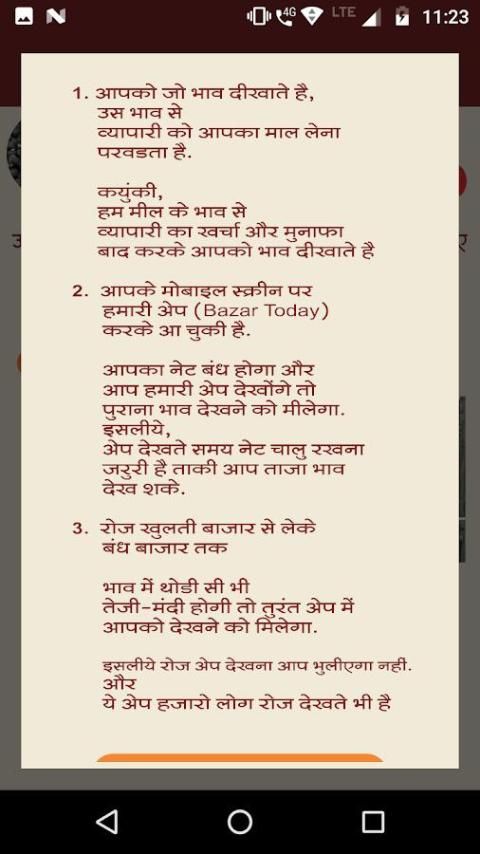 4G LTE 11:23
1. आपको जो भाव दीखाते है,
उस भाव से
व्यापारी को आपका माल लेना
परवडता है.
कयुंकी,
हम मील के भाव से
व्यापारी का खर्चा और मुनाफा
बाद करके आपको भाव दीखाते है
2. आपके मोबाइल स्क्रीन पर
हमारी अेप (Bazar Today)
करके आ चुकी है.
आपका नेट बंध होगा और
आप हमारी अेप देखोंगे तो
पुराना भाव देखने को मीलेगा.
इसलीये,
अेप देखते समय नेट चालु रखना
जरुरी है ताकी आप ताजा भाव
देख शके.
3. रोज खुलती बाजार से लेके
बंध बाजार तक
भाव में थोडी सी भी
तेजी-मंदी होगी तो तुरंत अेप में
आपको देखने को मिलेगा.
इसलीये रोज अेप देखना आप भुलीएगा नहीं.
और
ये अेप हजारो लोग रोज देखते भी है